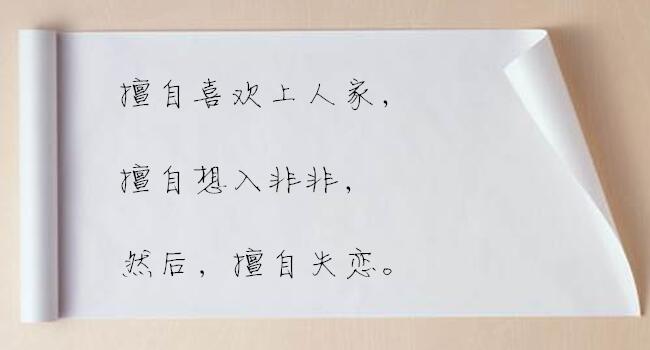 擅自喜欢上人家，
擅自想入非非，
然后，擅自失恋。